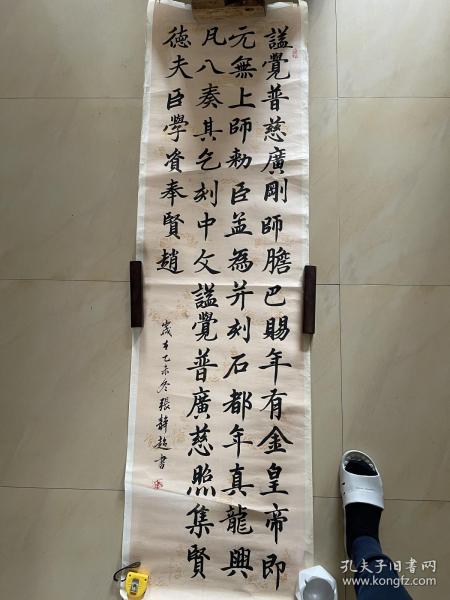 謚覺普慈廣剛師膽巴賜年有金皇帝即
元無上師勑臣孟為并刻石都年真龍興
凡八奏其乞刻中文謚覺普廣慈照集賢
德夫臣學資奉賢趙
歲在乙未冬張靜超書
孔夫子旧书网
www.kongfz.com